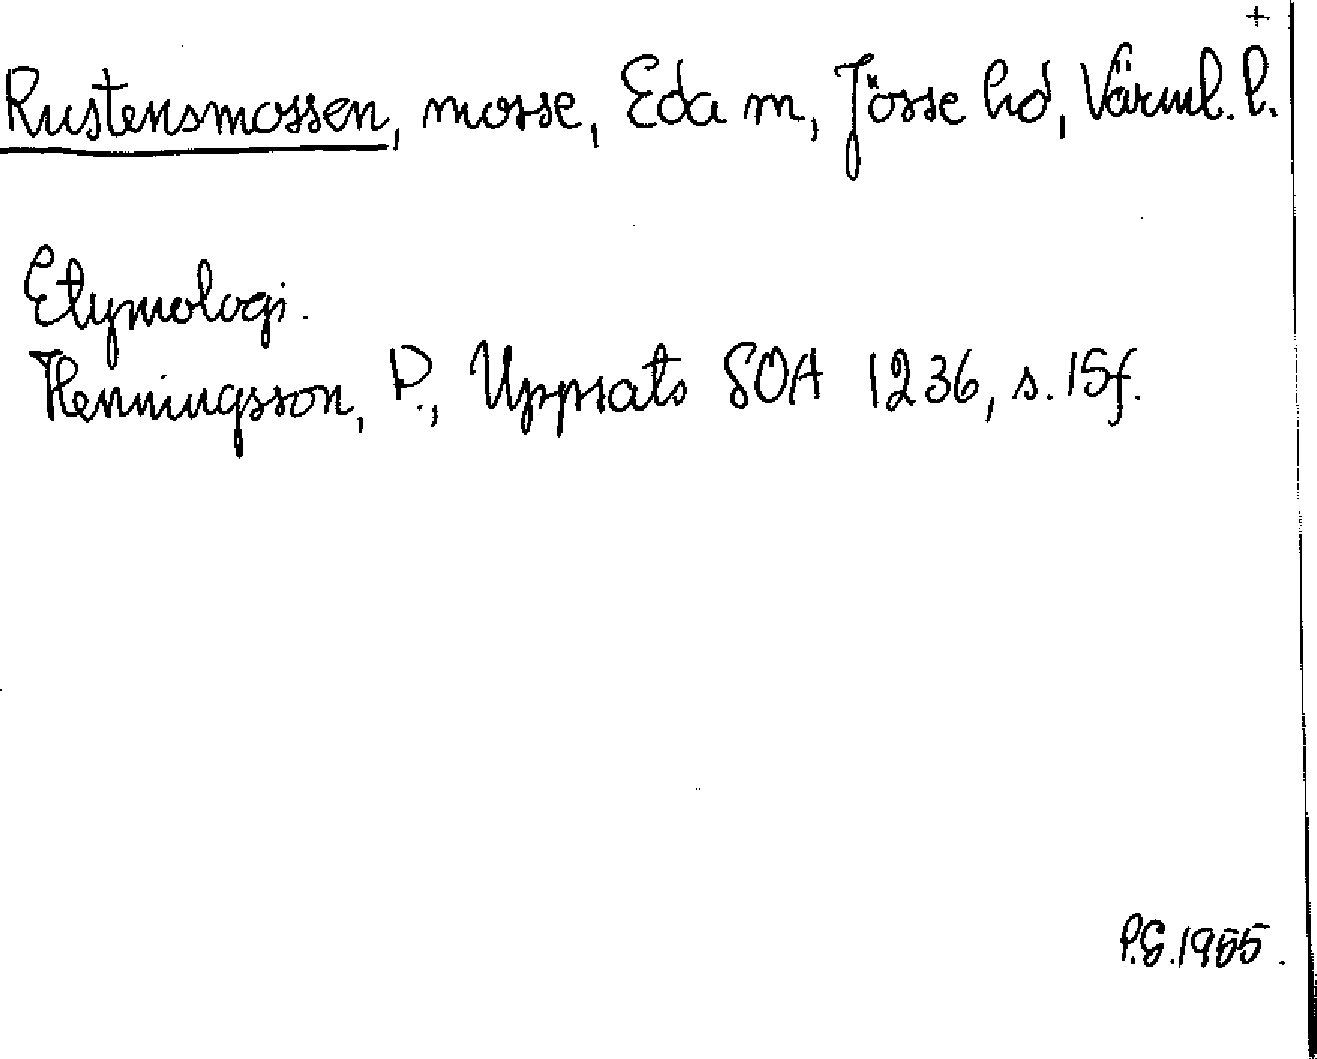 +
Rustensmossen, mosse, Eda m, Jösse hd, Värml. l.
Etymologi.
Henningsson, P., Uppsats SOA 1236, s. 15f.
P.G. 1965.